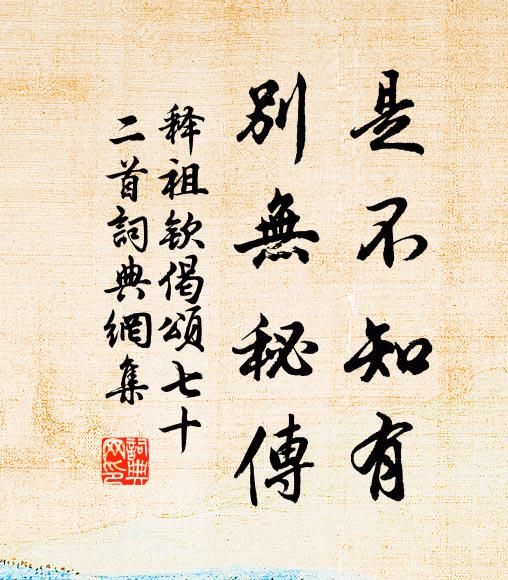 是不知有
別無秘傳
释祖钦偈頌七十
二首詞典網集
詞典
网印